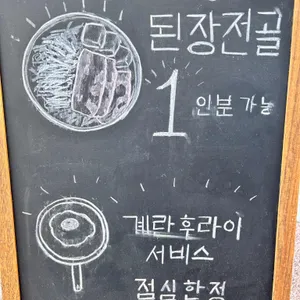 된장전골
1 인분 가능
계란 후라이
서비스
점심한정